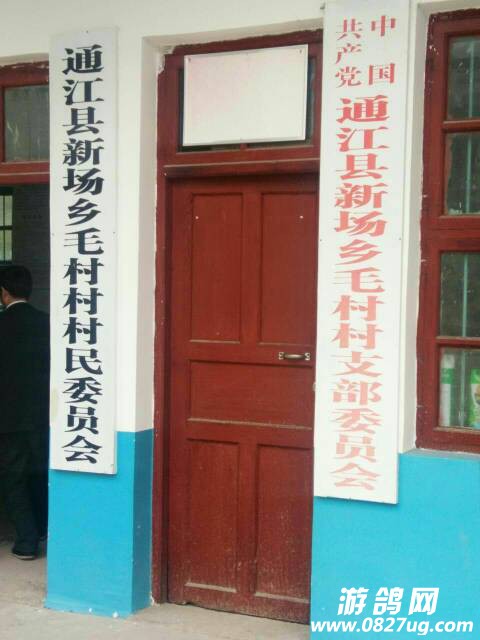 通江县新场乡毛村村村民委员会
中国
共产党
通江县新场乡毛村村支部委员会
游鸽网
www.0827ug.com